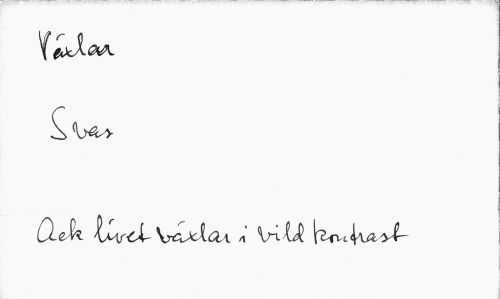 Växlar
Svas
Ack livet växlar i vild kontrast